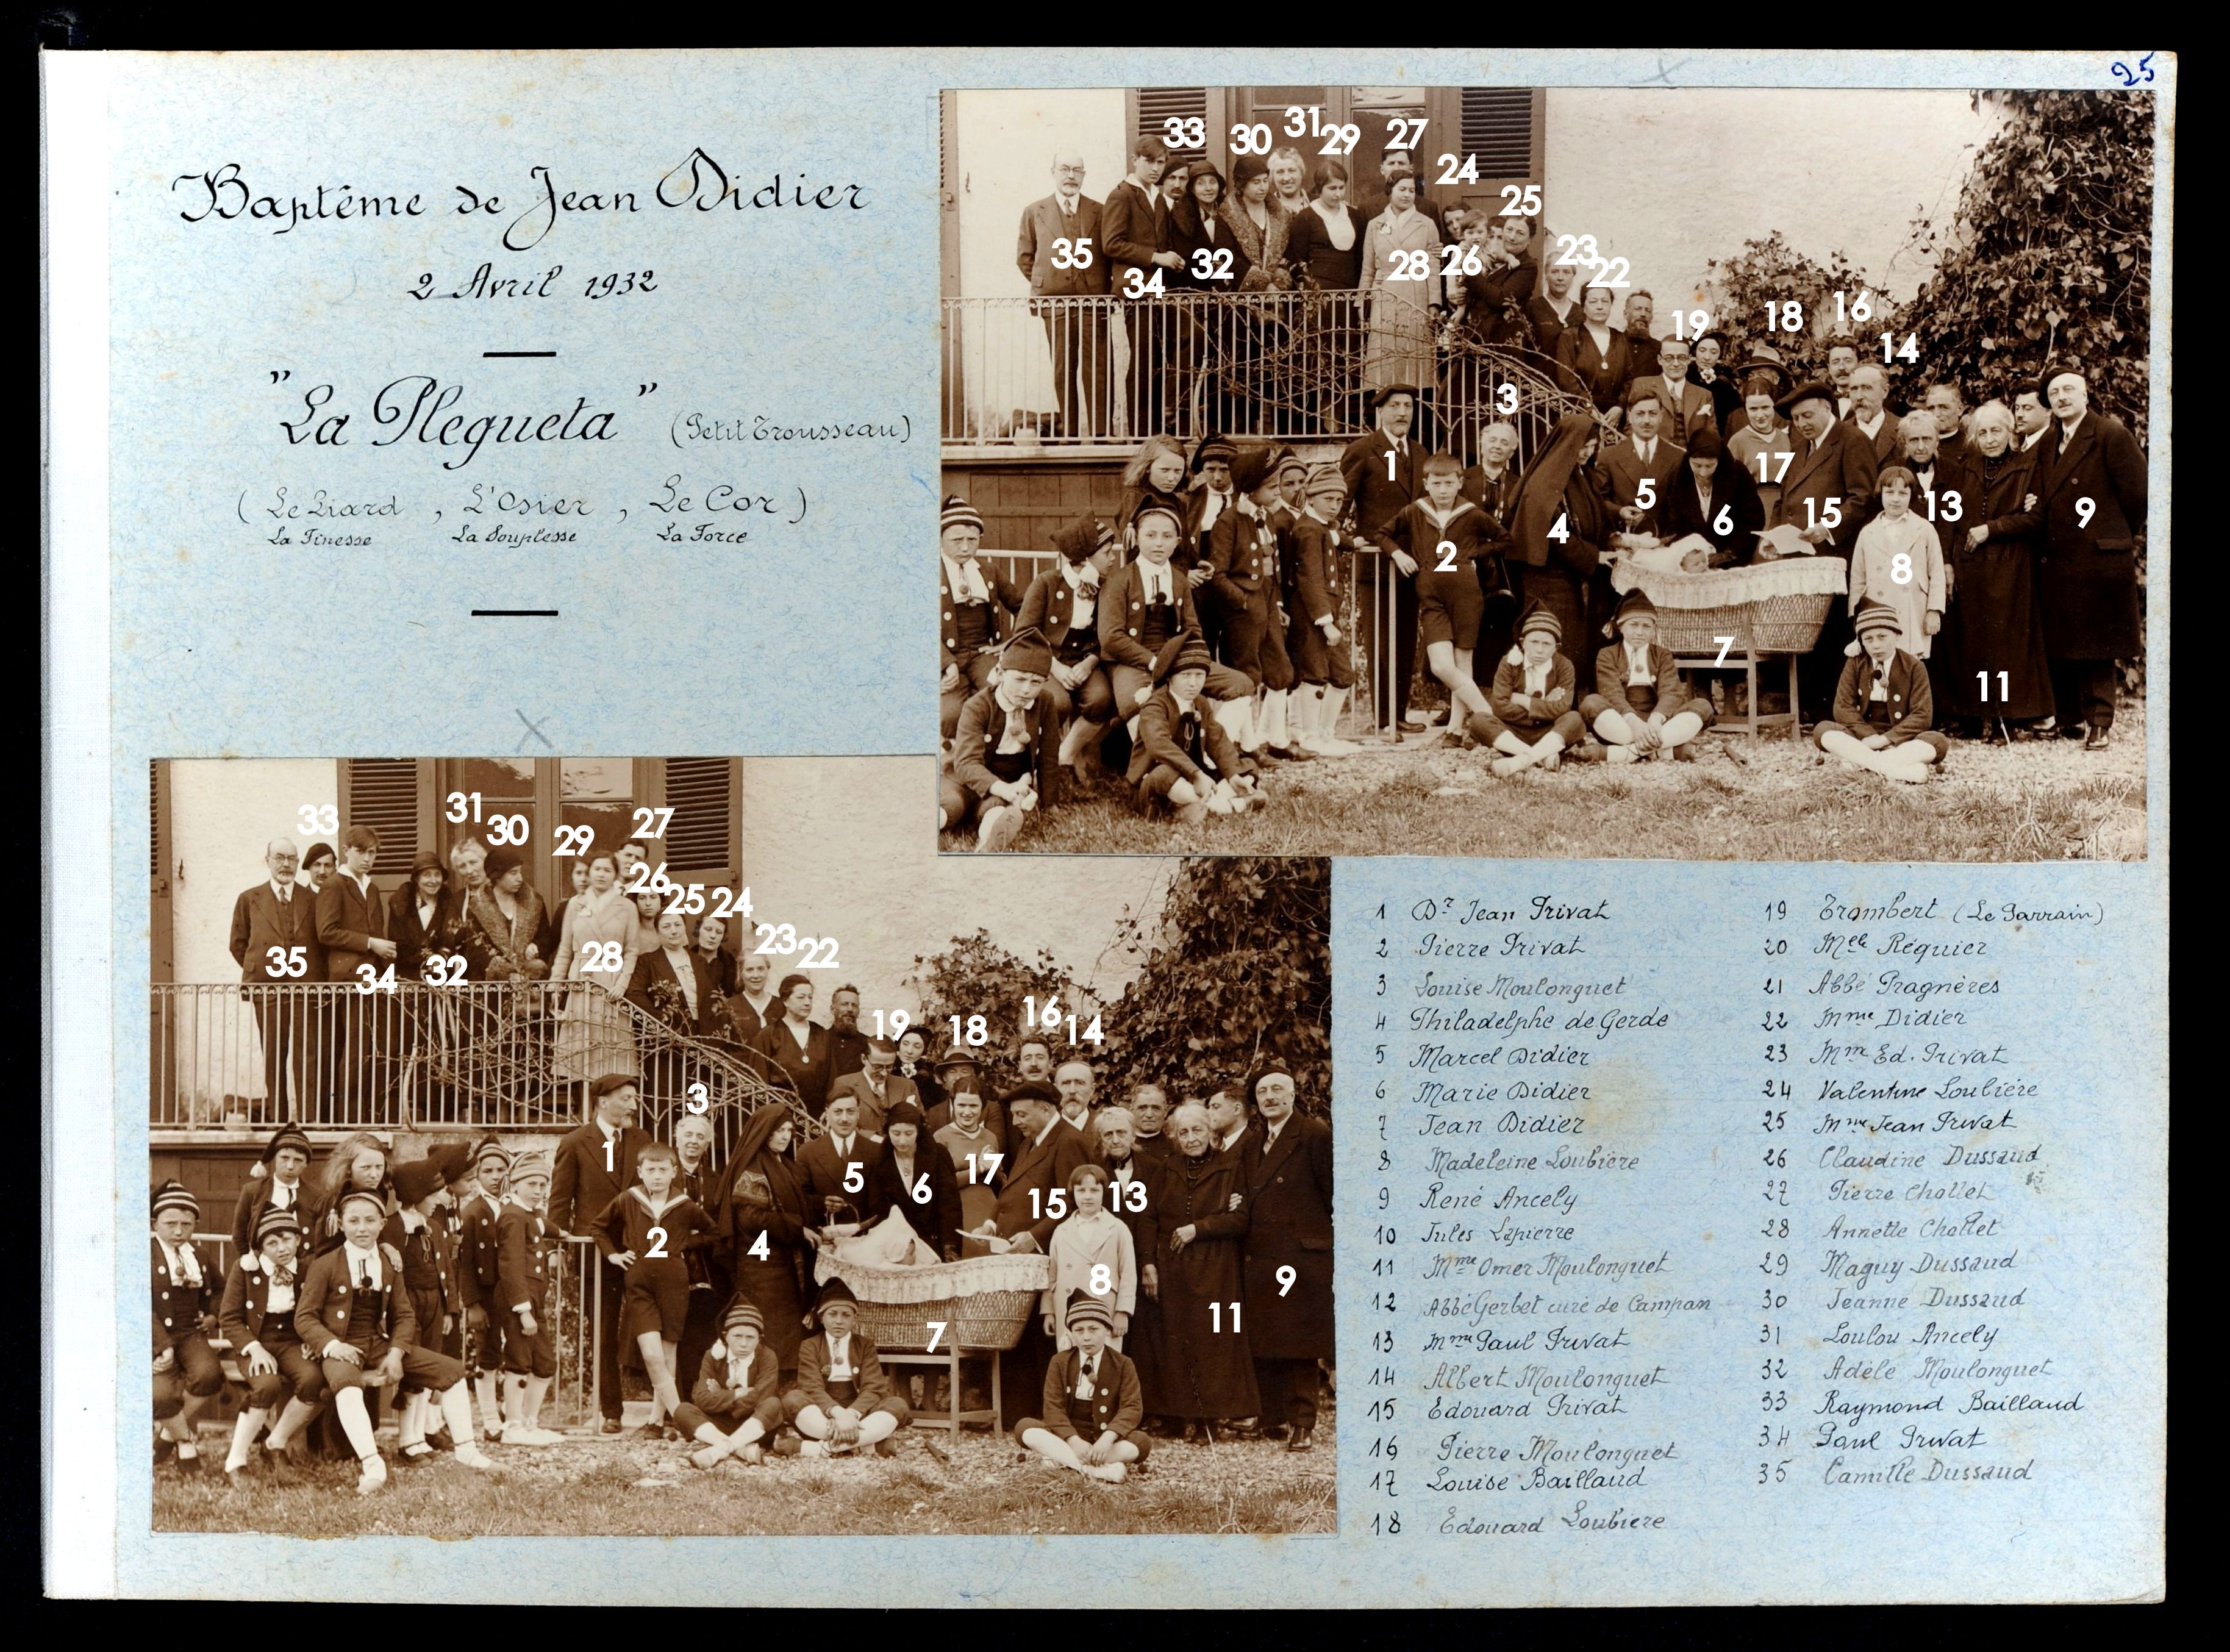 25
Baptême de Jean Didier
2 Avril 1932
"La Plegueta" (Petit Trousseau)
( Le Liard , L'Osier , Le Cor )
La Finesse La Souplesse La Force
33 30 31 29 27
24
25
35 34 32 28 26 23 22
19 18 16 14
3
1 5 17
2 4 6 15 13 9
8
7
11
33 31 30 29 27
26 25 24
35 34 32 28 23 22
19 18 16 14
3
1 5 6 17 15 13
2 4
8 9
7 11
1 Dr Jean Privat
2 Pierre Privat
3 Louise Moulonguet
4 Philadelphe de Gerde
5 Marcel Didier
6 Marie Didier
7 Jean Didier
8 Madeleine Loubière
9 René Ancely
10 Jules Lapierre
11 Mme Omer Moulonguet
12 Abbé Gerbet curé de Campan
13 Mme Paul Privat
14 Albert Moulonguet
15 Edouard Privat
16 Pierre Moulonguet
17 Louise Baillaud
18 Edouard Loubiere
19 Trombert (Le Parrain)
20 Melle Réquier
21 Abbé Pragnères
22 Mme Didier
23 Mm Ed. Privat
24 Valentine Loubière
25 Mme Jean Privat
26 Claudine Dussaud
27 Pierre Chollet
28 Annette Chollet
29 Maguy Dussaud
30 Jeanne Dussaud
31 Loulou Ancely
32 Adèle Moulonguet
33 Raymond Baillaud
34 Paul Privat
35 Camille Dussaud